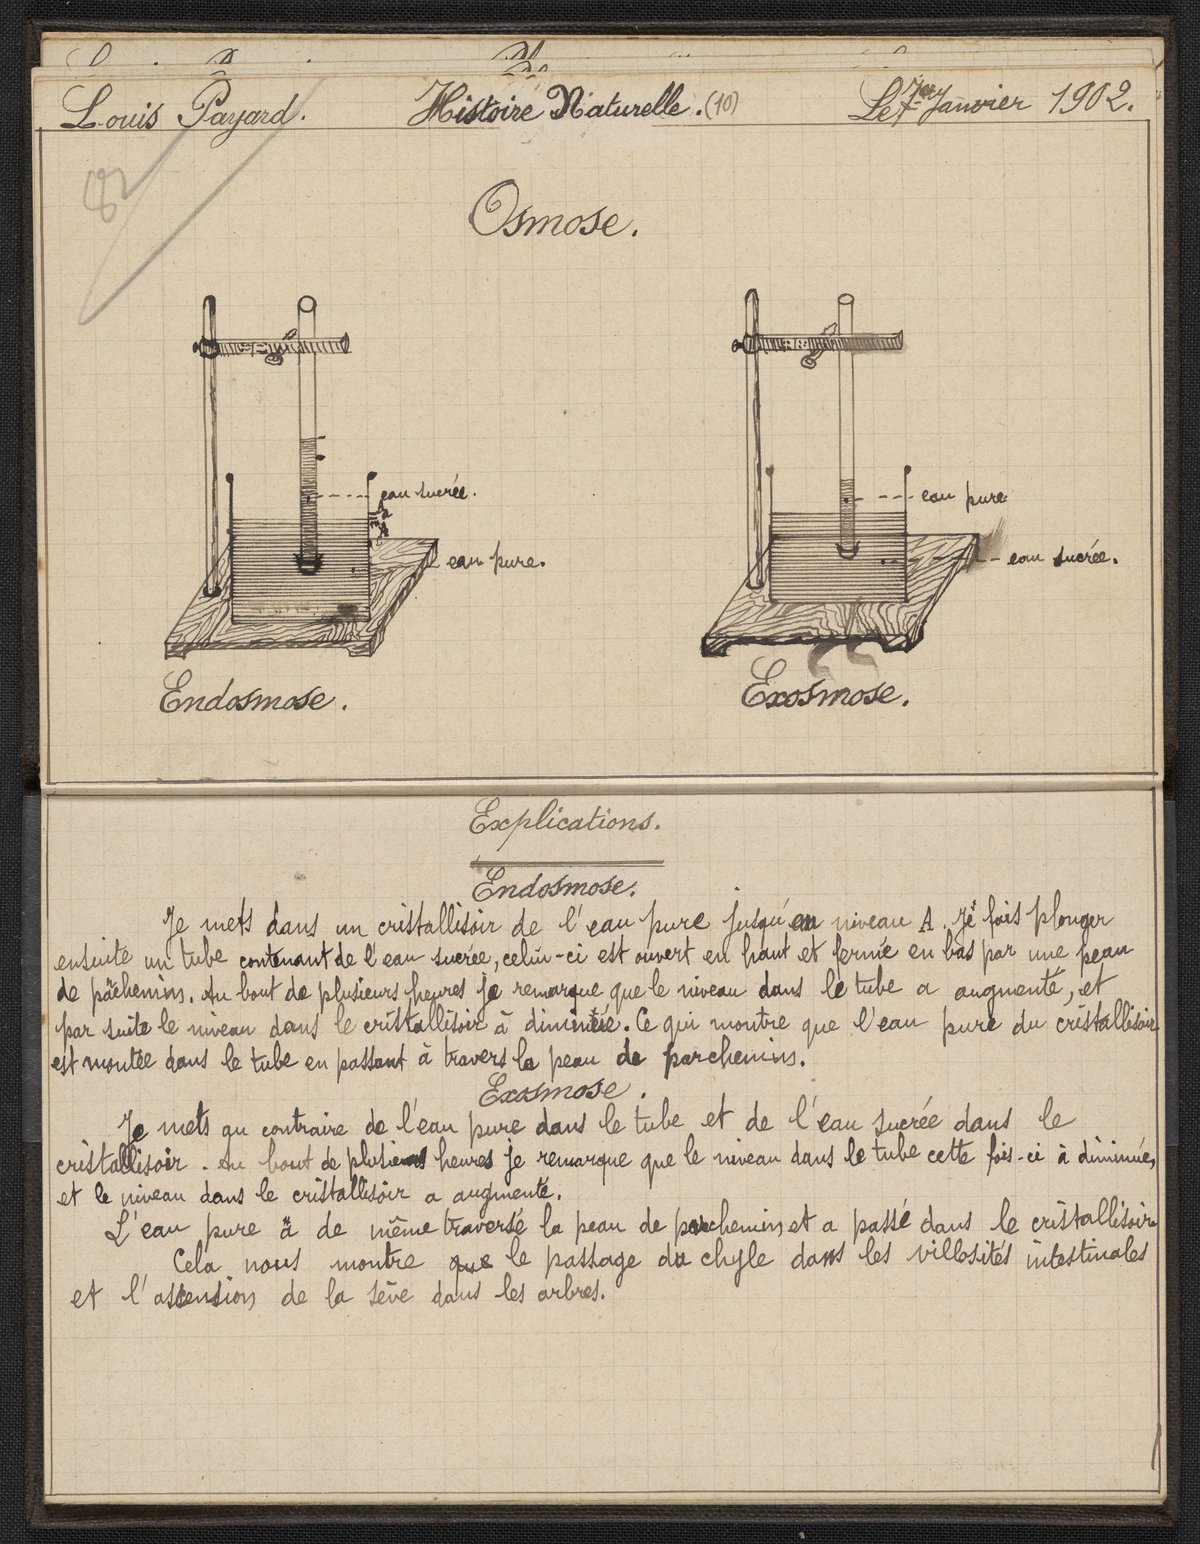 Louis Payard.
Histoire Naturelle. (10)
Le 1er Janvier 1902.
8
Osmose.
eau sucrée.
A
eau pure.
eau pure
eau sucrée.
Endosmose.
Exosmose.
Explications.
Endosmose.
Je mets dans un cristallisoir de l'eau pure jusqu'au niveau A. Je fais plonger
ensuite un tube contenant de l'eau sucrée, celui-ci est ouvert en haut et fermé en bas par une peau
de parchemin. Au bout de plusieurs heures je remarque que le niveau dans le tube a augmenté, et
par suite le niveau dans le cristallisoir à diminuée. Ce qui montre que l'eau pure du cristallisoir
est montée dans le tube en passant à travers la peau de parchemin.
Exosmose.
Je mets au contraire de l'eau pure dans le tube et de l'eau sucrée dans le
cristallisoir. Au bout de plusieurs heures je remarque que le niveau dans le tube cette fois-ci à diminué,
et le niveau dans le cristallisoir a augmenté.
L'eau pure à de même traversé la peau de parchemin, et a passé dans le cristallisoir.
Cela nous montre que le passage du chyle dans les villosités intestinales
et l'ascension de la sève dans les arbres.